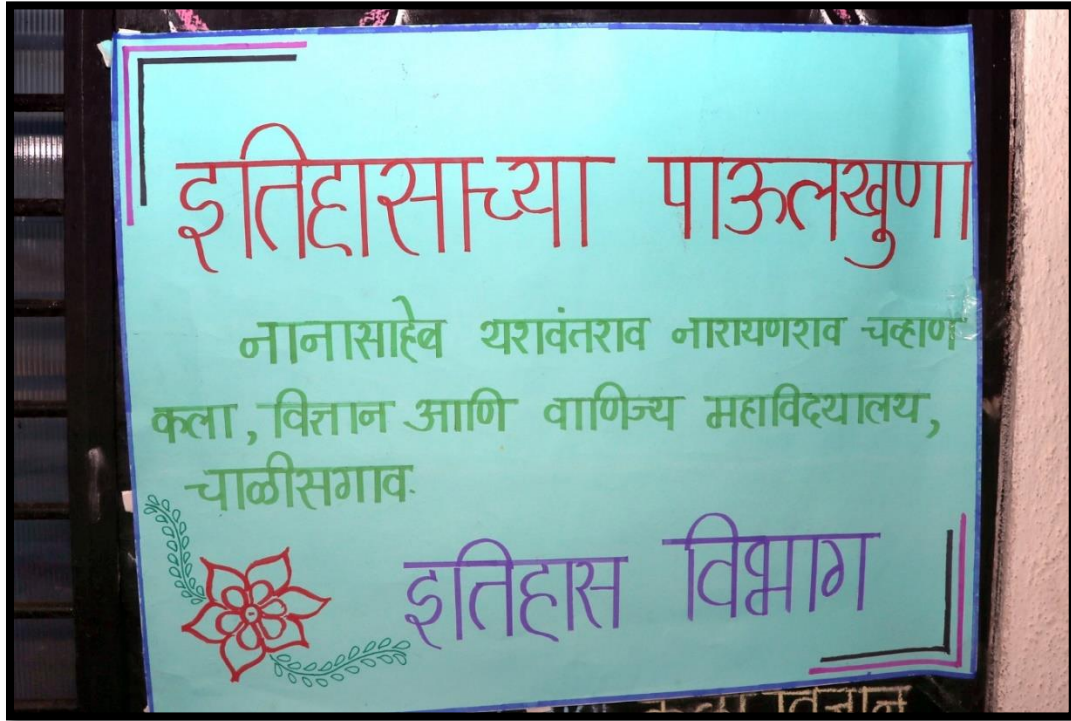 इतिहासाच्या पाऊलखुणा
नानासाहेब यशवंतराव नारायणराव चव्हाण
कला, विज्ञान आणि वाणिज्य महाविदयालय,
चाळीसगाव.
इतिहास विभाग
कला विज्ञान